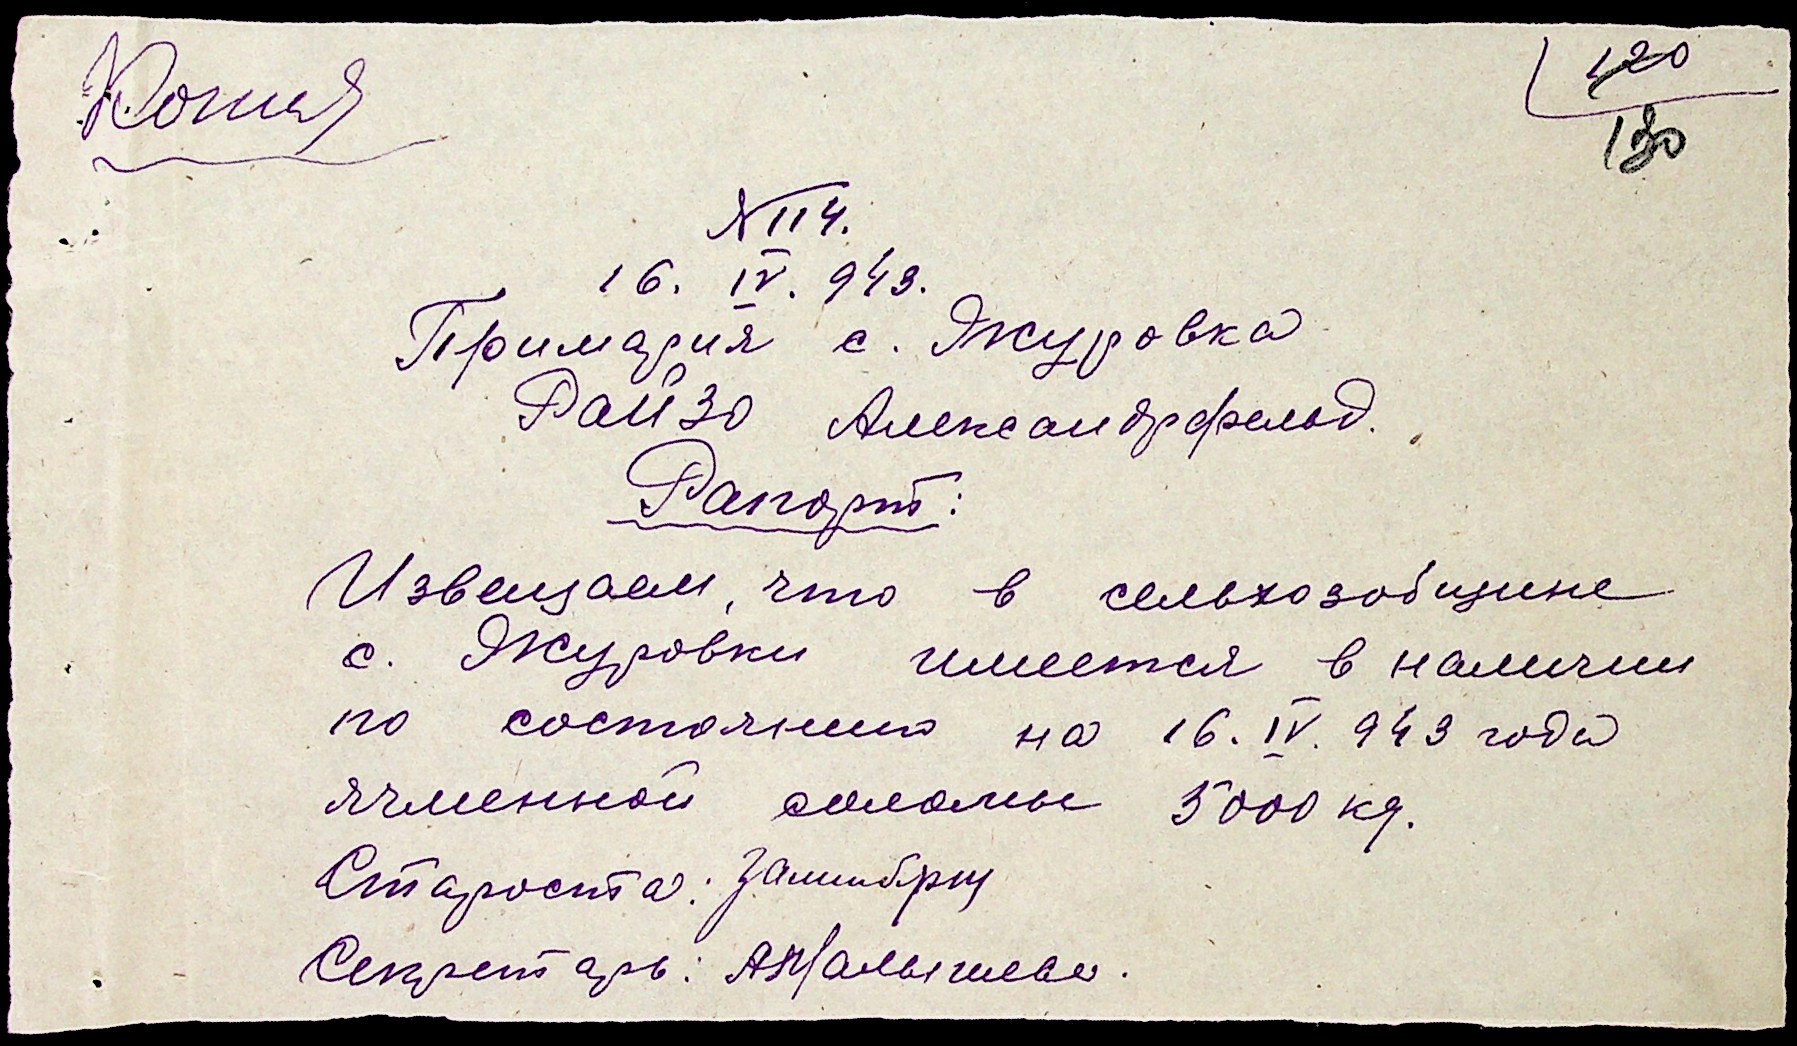 Копия
120
130
№ 114.
16. IV. 943.
Примария с. Журовка
Райзо Александрфельд.
Рапорт:
Извещаем, что в сельхозобщине
с. Журовки имеется в наличии
по состоянию на 16. IV. 943 года
ячменной соломы 5000 кг.
Староста:
Секретарь: